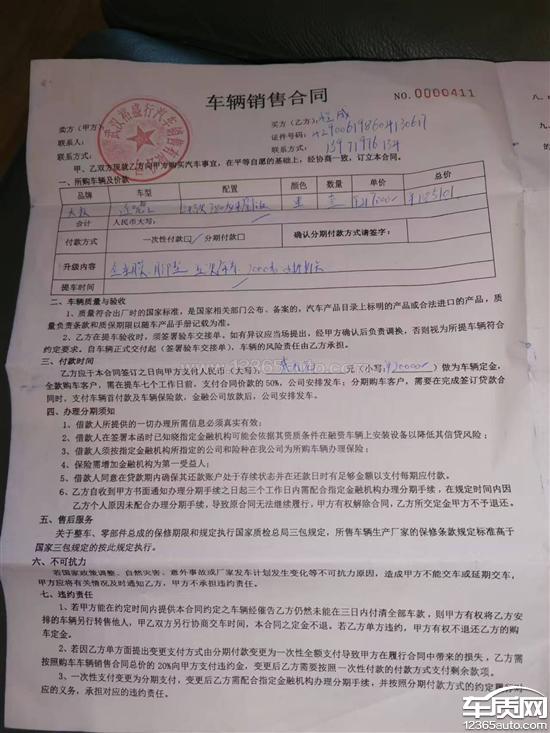 车辆销售合同
NO.0000411
卖方（甲方）：
买方（乙方）：
联系人：
证件号码：
联系方式：
联系方式：
甲、乙双方现就乙方向甲方购买汽车事宜，在平等自愿的基础上，经协商一致，订立本合同。
一、所购车辆及价款
品牌 车型 配置 颜色 数量 单价 总价
合计 人民币大写：
付款方式 一次性付款☑ 分期付款□ 确认分期付款方式请签字：
升级内容
提车时间
二、车辆质量与验收
1、质量符合出厂时的国家标准，是国家相关部门公布、备案的，汽车产品目录上标明的产品或合法进口的产品，质
量负责条款和质保期限以随车产品手册记载为准。
2、乙方在提车验收时，须签署验车交接单。如有异议应当场提出，经甲方确认后负责调换，否则视为所提车辆符合
约定要求。自车辆正式交付起（签署验车交接单），车辆的风险责任由乙方承担。
三、付款时间
乙方应于本合同签订之日向甲方支付人民币（大写）： 元（小写： ）做为车辆定金，
全款购车客户，需在提车七个工作日前，支付合同价款的50%，公司安排发车；分期购车客户，需要在完成签订贷款合
同时，支付车辆首付款及车辆保险款，金融公司放款后，公司安排发车。
四、办理分期须知
1、借款人所提供的一切办理所需信息必须真实有效；
2、借款人在签署本函时已知晓指定金融机构可能会依据其资质条件在融资车辆上安装设备以降低其信贷风险；
3、借款人须按指定金融机构所指定的公司和险种在我公司为所购车辆办理保险；
4、保险需增加金融机构为第一受益人；
5、借款人同意在贷款期内确保其还款账户处于存续状态并在还款日时有足够金额以支付每期应付款。
6、乙方自收到甲方书面通知办理分期手续之日起三个工作日内需配合指定金融机构办理分期手续，在规定时间内因
乙方个人原因未配合办理分期手续，导致原合同无法继续履行，甲方有权解除合同，乙方所交定金甲方不予退还。
五、售后服务
关于整车、零部件总成的保修期限和规定执行国家质检总局三包规定，所售车辆生产厂家的保修条款规定标准高于
国家三包规定的按此规定执行。
六、不可抗力
若国家政策调整、自然灾害、意外事故或厂家发车计划发生变化等不可抗力原因，造成甲方不能交车或延期交车，
甲方应将有关情况及时通知乙方，甲方不承担违约责任。
七、违约责任
1、若甲方能在约定时间内提供本合同约定之车辆经催告乙方仍然未能在三日内付清全部车款，则甲方有权将乙方安
排的车辆另行转售他人，甲乙双方另行协商交车时间，本合同之定金不退。若乙方单方违约，甲方有权不退还乙方的购
车定金。
2、若因乙方单方面提出变更支付方式由分期付款变更为一次性全额支付导致甲方在履行合同中带来的损失，乙方需
按照购车车辆销售合同总价的20%向甲方支付违约金，变更后乙方需要按照一次性付款的付款方式支付剩余款项。
3、一次性支付变更为分期支付，变更后乙方需配合指定金融机构办理分期手续，并按照分期付款方式的约定履行对
应的义务，承担对应的违约责任。
车质网
www.12365auto.com